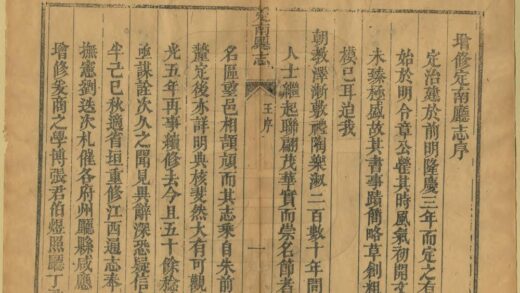 增修定南廳志序
定治建於前明隆慶三年而定之有
始於明令章公其時風氣初開文
未臻極盛故其書事蹟簡略草創粗
模已耳迨我
朝教澤漸敷禮陶樂淑二百數十年間
人士繼起聯翩茂華實而崇名節者
定南志
王序
一
名區邑相頡頏而其志乘自朱前
釐定後亦詳明典核斐然大有可觀
光五年再事續修去今且五十餘稔
亟謀詮次久之聞見異辭深恐疑信
己巳秋適省垣重修江西通志奉
撫憲劉迭次札催各府州廳縣咸應
增修爰商之學博張君伯照廳丁